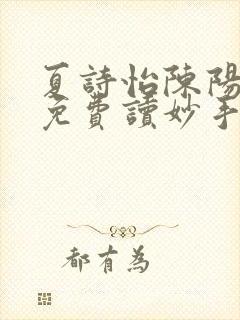 夏詩怡陳陽
免費讀妙手
都有為